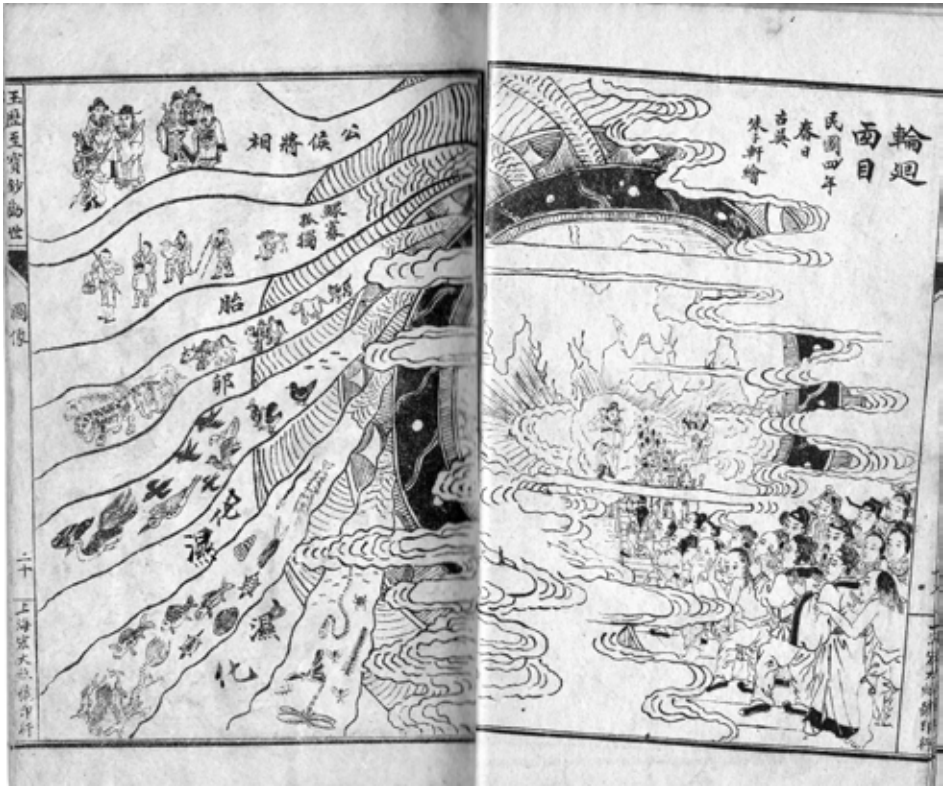 輪廻
面目
民國四年
春日
古吳
軒繪
公侯將相
鰥寡
孤獨
胎
卵
濕
濕
化
玉歷至寶鈔勸世
圖像
二十
上海宏大
印行